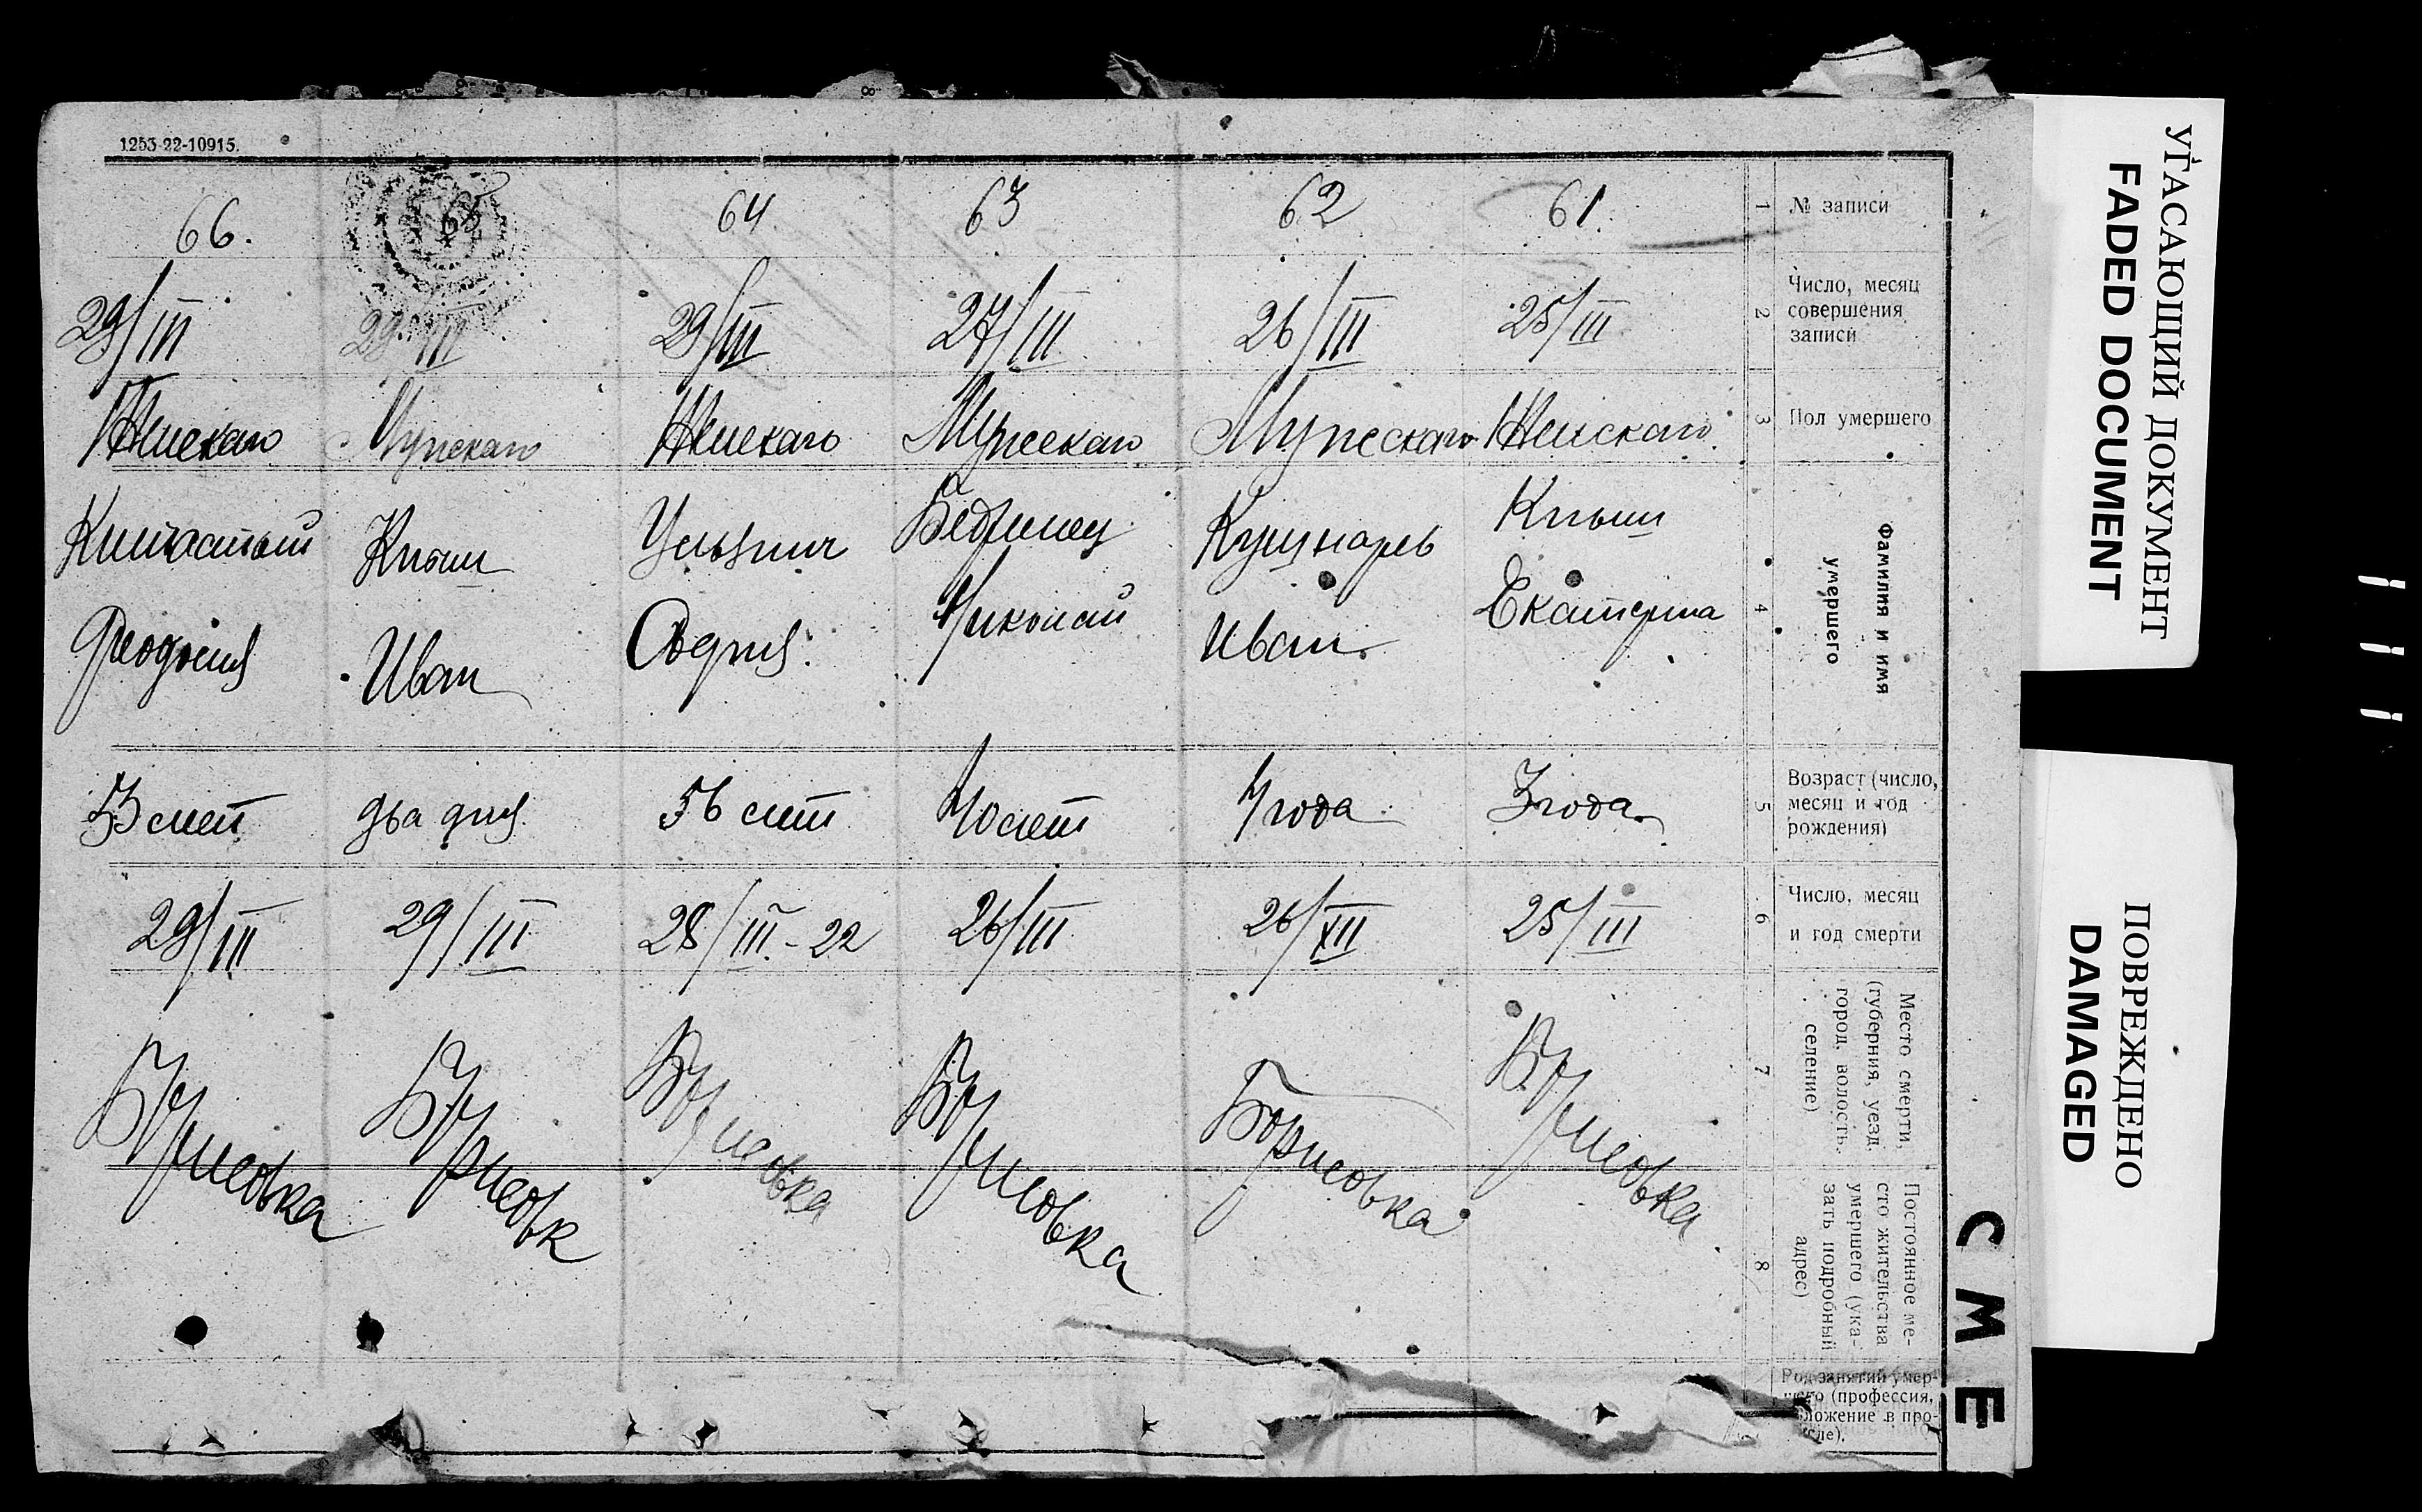 1253-22-10915.
66.
65
64
63
62
61.
1
№ записи
29/III
29/III
29/III
27/III
26/III
25/III
2
Число, месяц
совершения
записи
Женскаго
Мужскаго
Женскаго
Мужескаго
Мужескаго
Женскаго
3
Пол умершего
Книш
Кушнарь
Книш
Феодосия
Иван
София.
Николай
Иван
Екатерина
4
Фамилия и имя
умершего
53 лет
два дня
56 лет
40 лет
4 года
3 года
5
Возраст (число,
месяц и год
рождения)
29/III
29/III
28/III-22
26/III
26/XII
25/III
6
Число, месяц
и год смерти
Борисовка
Борисовк
Борисовка
Борисовка
Борисовка
Борисовка
7
Место смерти,
(губерния, уезд,
город, волость,
селение)
8
Постоянное ме-
сто жительства
умершего (ука-
зать подробный
адрес)
Род занятий умер-
(профессия,
в про-
СМЕ
УГАСАЮЩИЙ ДОКУМЕНТ
FADED DOCUMENT
ПОВРЕЖДЕНО
DAMAGED